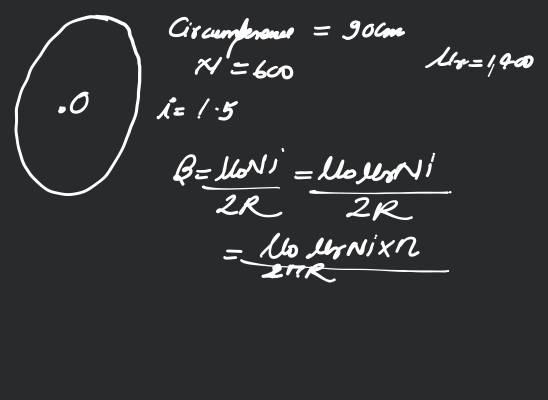 Circumference = 90cm
N = 600
μr = 1,400
.O
i = 1.5
B = μ0Ni / 2R = μ0μrNi / 2R
= μ0μrNi×π / 2πR